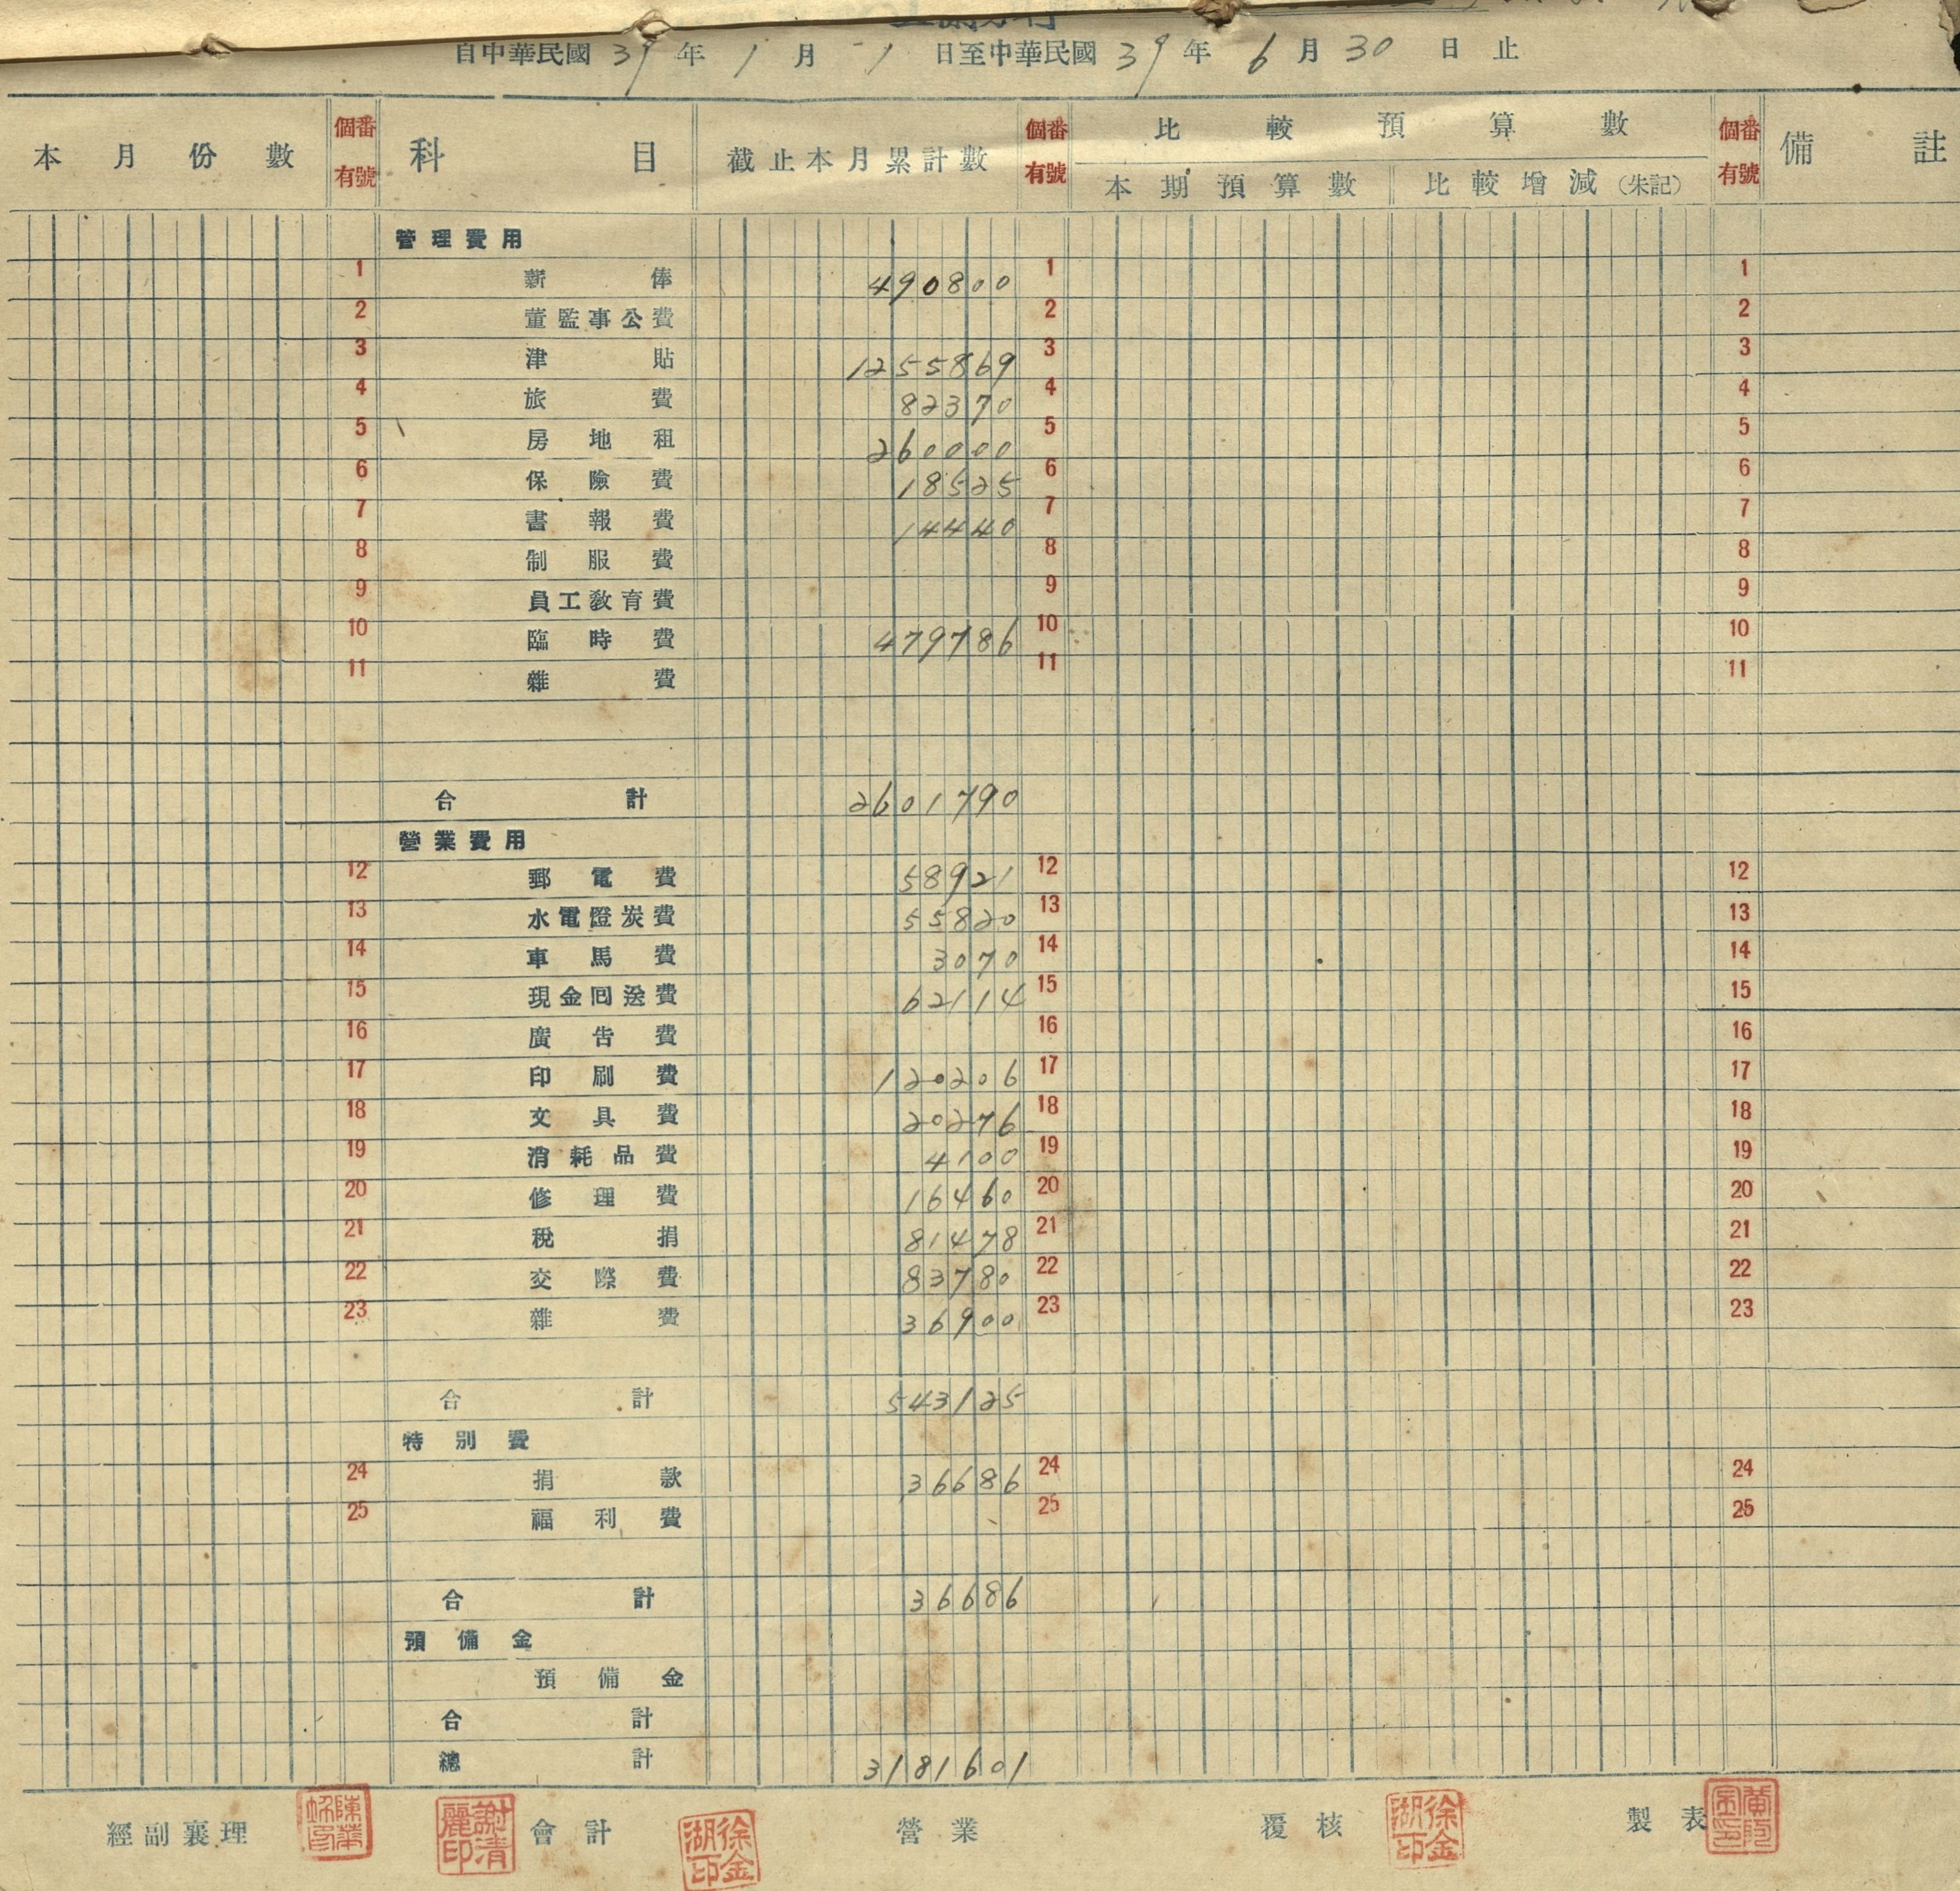 自中華民國 39 年 1 月 1 日至中華民國 39 年 6 月 30 日止
本月份數 個有 番號 科目 截止本月累計數 個有 番號 比較預算數 個有 番號 備註
本期預算數 比較增減(朱記)
管理費用
1 薪俸 490800 1 1
2 董監事公費 2 2
3 津貼 1255869 3 3
4 旅費 82370 4 4
5 房地租 260000 5 5
6 保險費 18525 6 6
7 書報費 14440 7 7
8 制服費 8 8
9 員工教育費 9 9
10 臨時費 479786 10 10
11 雜費 11 11
合計 2601790
營業費用
12 郵電費 58921 12 12
13 水電燈炭費 55820 13 13
14 車馬費 3070 14 14
15 現金回送費 62114 15 15
16 廣告費 16 16
17 印刷費 120206 17 17
18 文具費 20276 18 18
19 消耗品費 4100 19 19
20 修理費 16460 20 20
21 稅捐 81478 21 21
22 交際費 83780 22 22
23 雜費 36900 23 23
合計 543125
特別費
24 捐款 36686 24 24
25 福利費 25 25
合計 36686
預備金
預備金
合計
總計 3181601
經副襄理 謝清麗印 會計 徐金湖印 營業 覆核 徐金湖印 製表